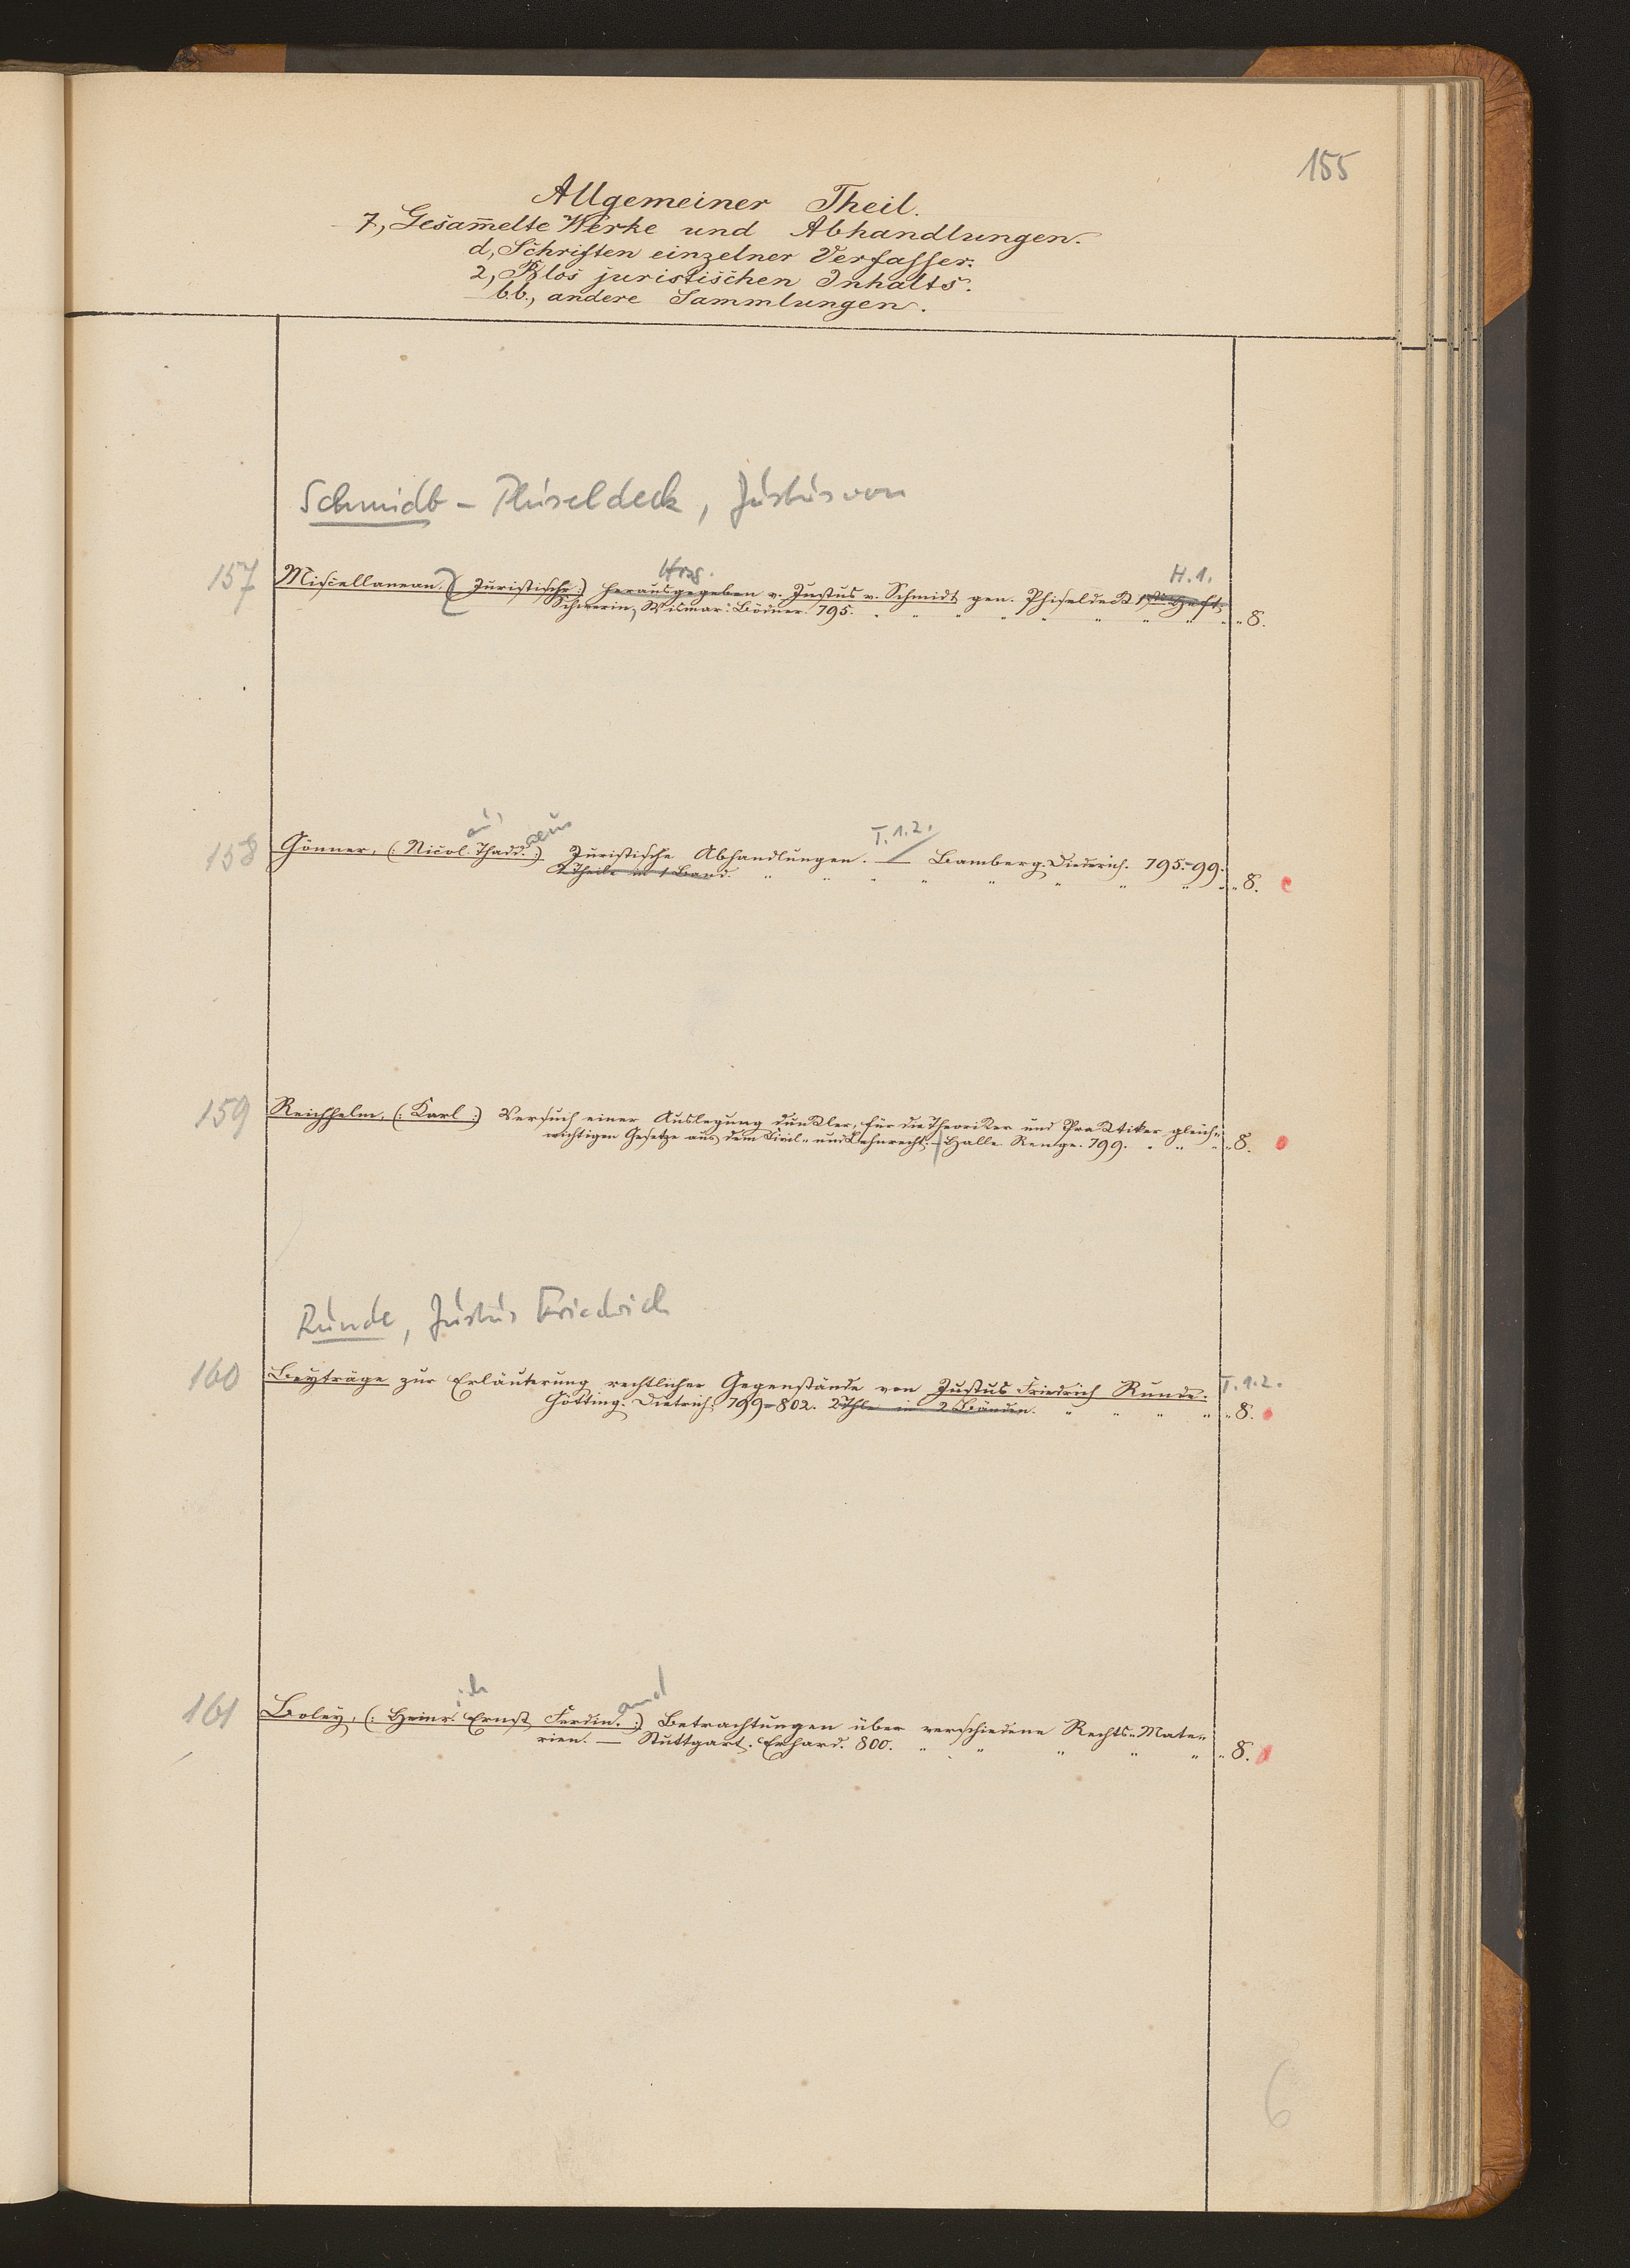 155
Allgemeiner Theil.
7, Gesam̄elte Werke und Abhandlungen.
d, Schriften einzelner Verfasser.
2, Blos juristischen Inhalts.
bb., andere Sammlungen.
Schmidt - Phiseldeck, Justus von
Hrsg. H. 1.
157 Miscellaneen. (: Juristische :) herausgegeben v. Justus v. Schmidt gen. Phiseldeck 1stes Heft.
Schwerin, Wismar: Bödner. 795. " " " " " " " " 8.
aus T. 1.2.
158 Gönner, (: Nicol. Thadd. :) Juristische Abhandlungen. — Bamberg. Diederich. 795-99.
2 Theile in 1 Band. " " " " " " " " 8.
159 Reichhelm, (: Karl :) Versuch einer Auslegung dunkler, für die Theoriker und Praktiker gleich-
wichtigen Gesetze aus dem Civil- und Lehnrecht. - Halle. Renge. 799. " " " 8.
Runde, Justus Friedrich
160 Beyträge zur Erläuterung rechtlicher Gegenstände von Justus Friedrich Runde. T. 1.2.
Götting. Dietrich. 799-802. 2 Thle in 2 Bänden. " " " " 8.
ich and
161 Boley, (: Heinr. Ernst Ferdin. :) Betrachtungen über verschiedene Rechts-Mate-
rien. — Stuttgart. Erhard. 800. " " " " " 8.
6